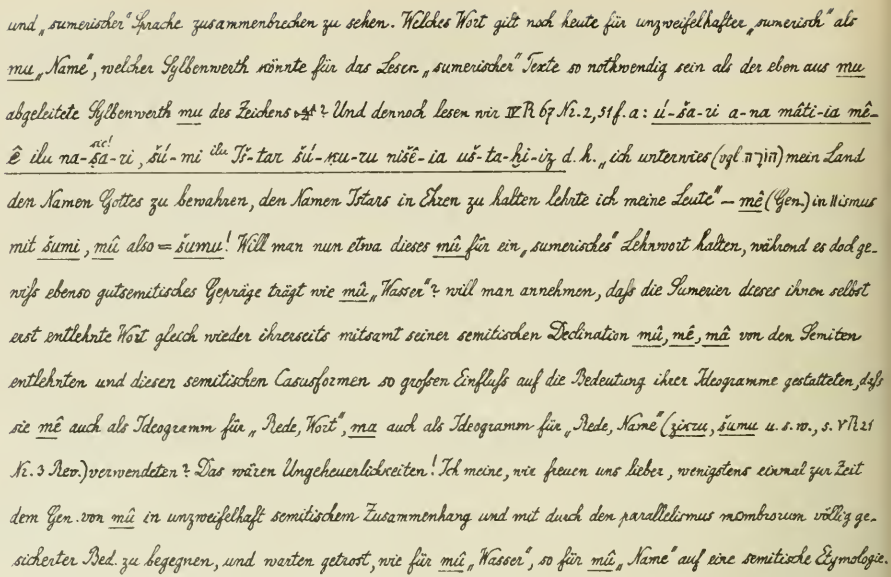 und „sumerischer“ Sprache zusammenbrechen zu sehen. Welches Wort gilt noch heute für unzweifelhafter „sumerisch“ als
mu „Name“, welcher Sylbenwerth könnte für das Lesen „sumerischer“ Texte so nothwendig sein als der eben aus mu
abgeleitete Sylbenwerth mu des Zeichens 𒈬? Und dennoch lesen wir IV R 67 Nr. 2, 51 f. a: ú-ša-ri a-na mâti-ia mê-
ê ilu na-ṣa-ri, šú-mi ilu Iš-tar šú-ḳu-ru nišê-ia uš-ta-ḫi-iz d. h. „ich unterwies (vgl. הורה) mein Land
sic!
den Namen Gottes zu bewahren, den Namen Istars in Ehren zu halten lehrte ich meine Leute“ – mê (Gen.) in llismus
mit šumi, mû also = šumu! Will man nun etwa dieses mû für ein „sumerisches“ Lehnwort halten, während es doch ge-
wiſs ebenso gutsemitisches Gepräge trägt wie mû „Wasser“? will man annehmen, daſs die Sumerier dieses ihnen selbst
erst entlehnte Wort gleich wieder ihrerseits mitsamt seiner semitischen Declination mû, mê, mâ von den Semiten
entlehnten und diesen semitischen Casusformen so groſsen Einfluſs auf die Bedeutung ihrer Ideogramme gestatteten, daſs
sie mê auch als Ideogramm für „Rede, Wort“, ma auch als Ideogramm für „Rede, Name“ (zikru, šumu u. s. w., s. V R 21
Nr. 3 Rev.) verwendeten? Das wären Ungeheuerlichkeiten! Ich meine, wir freuen uns lieber, wenigstens einmal zur Zeit
dem Gen. von mû in unzweifelhaft semitischem Zusammenhang und mit durch den parallelismus membrorum völlig ge-
sicherter Bed. zu begegnen, und warten getrost, wie für mû „Wasser“, so für mû „Name“ auf eine semitische Etymologie.